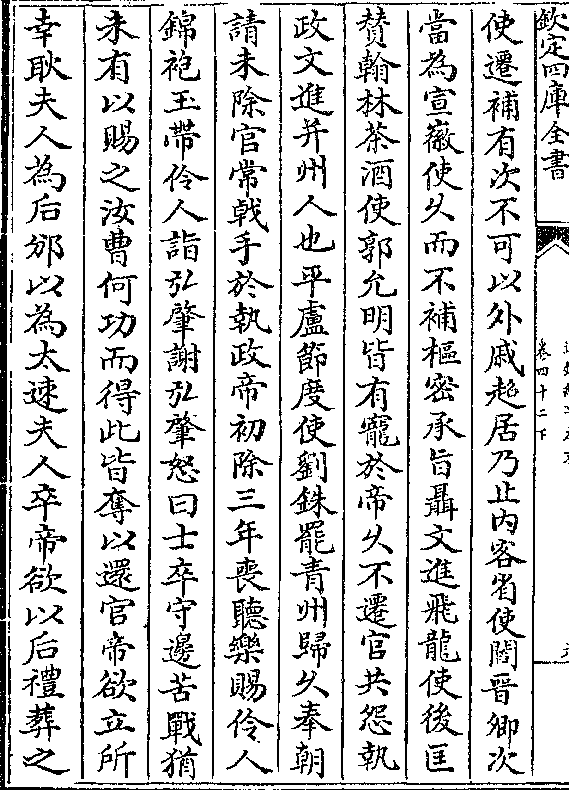 欽定四庫全書
卷四十二下
使遷補有次不可以外戚超居乃止内客省使閻晉卿次
當為宣徽使久而不補樞密承旨聶文進飛龍使後匡
賛翰林茶酒使郭允明皆有寵於帝久不遷官共怨執
政文進并州人也平盧節度使劉銖罷青州歸久奉朝
請未除官常戟手於執政帝初除三年喪聽樂賜伶人
錦袍玉帶伶人詣弘肇謝弘肇怒曰士卒守邊苦戰猶
未有以賜之汝曹何功而得此皆奪以還官帝欲立所
幸耿夫人為后邠以為太速夫人卒帝欲以后禮葬之